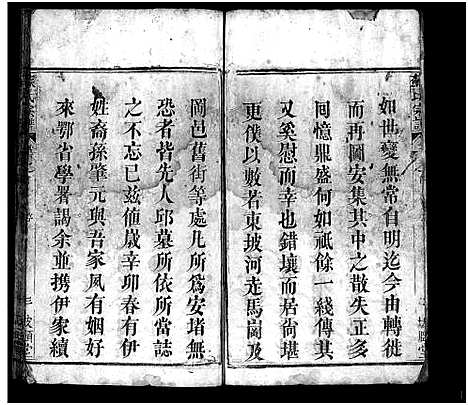 如世變無常自明迄今由轉徙
而再圖安集其中之散失正多
回憶鼎盛何如祇餘一綫傳其
又奚慰而幸也錯壤而居尚堪
更僕以數若東坡河走馬崗及
岡邑舊街等處凡所爲安堵無
恐者皆先人邱墓所依所當誌
之不忘已兹値歲辛卯春有他
姓裔孫肇元與吾家夙有姻好
來鄂省學署謁余並携伊家續